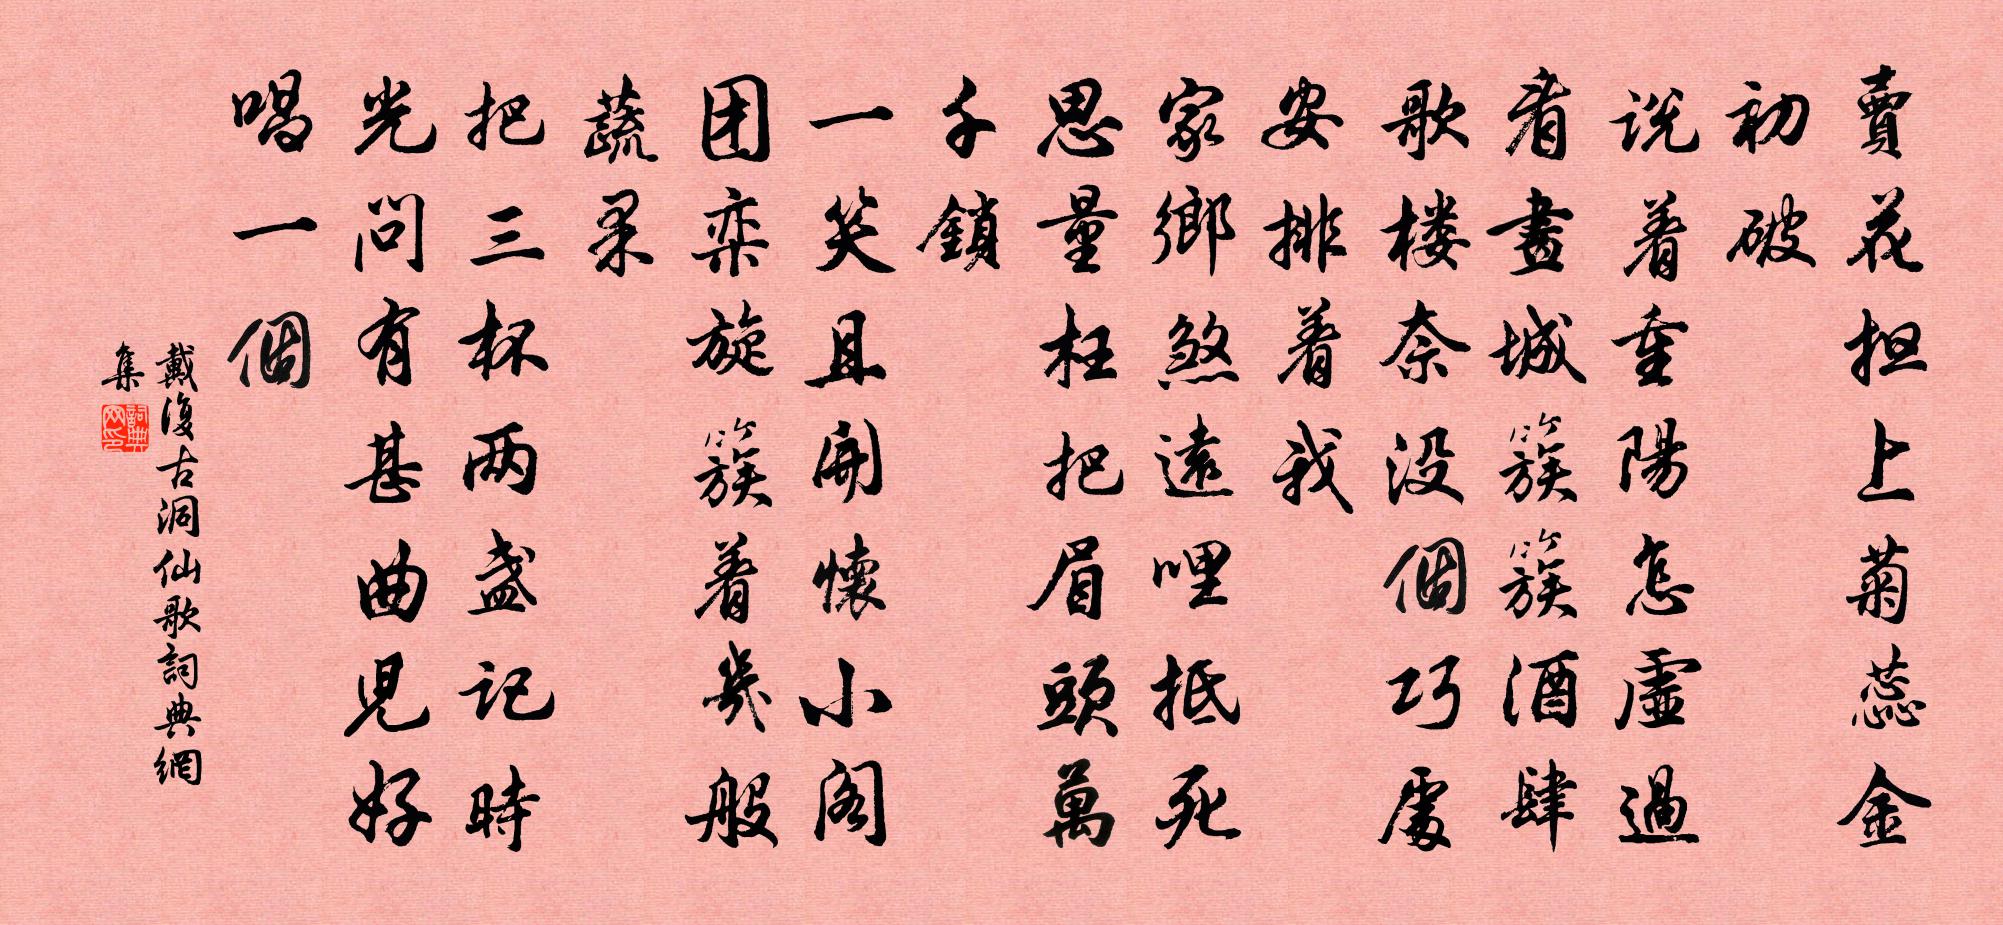 賣花担上菊蕊金
初破
説着重陽怎虛過
看畫城簇簇酒肆
歌楼奈没個巧處
安排着我
家鄉煞遠哩抵死
思量枉把眉頭萬
千鎖
一笑且開懷小阁
团栾旋簇着幾般
蔬果
把三杯两盏記時
光問有甚曲兒好
唱一個
戴復古洞仙歌詞典網
集
詞典
网印